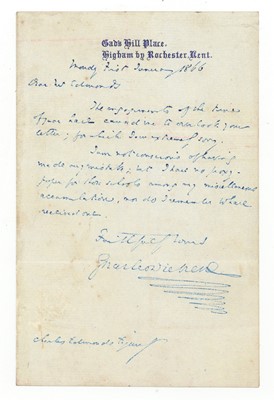 Gad's Hill Place.
Higham by Rochester, Kent.
Monday First January 1866
Dear Mr Edmonds
The engagements of the time
of year have caused me to overlook your
letter; for which I am extremely sorry.
I am not conscious of having
made any mistake; but I have no
paper for the schools among my miscellaneous
accumulations, nor do I remember to have
received one.
Faithfully Yours
Charles Dickens
Charles Edmonds Esquire